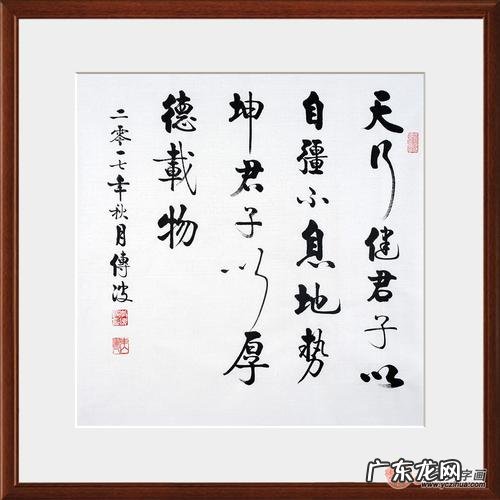 天行健君子以
自彊不息地勢
坤君子以厚
德載物
二零一七年秋月傅波
字画
www.yczihua.com
广东龙网